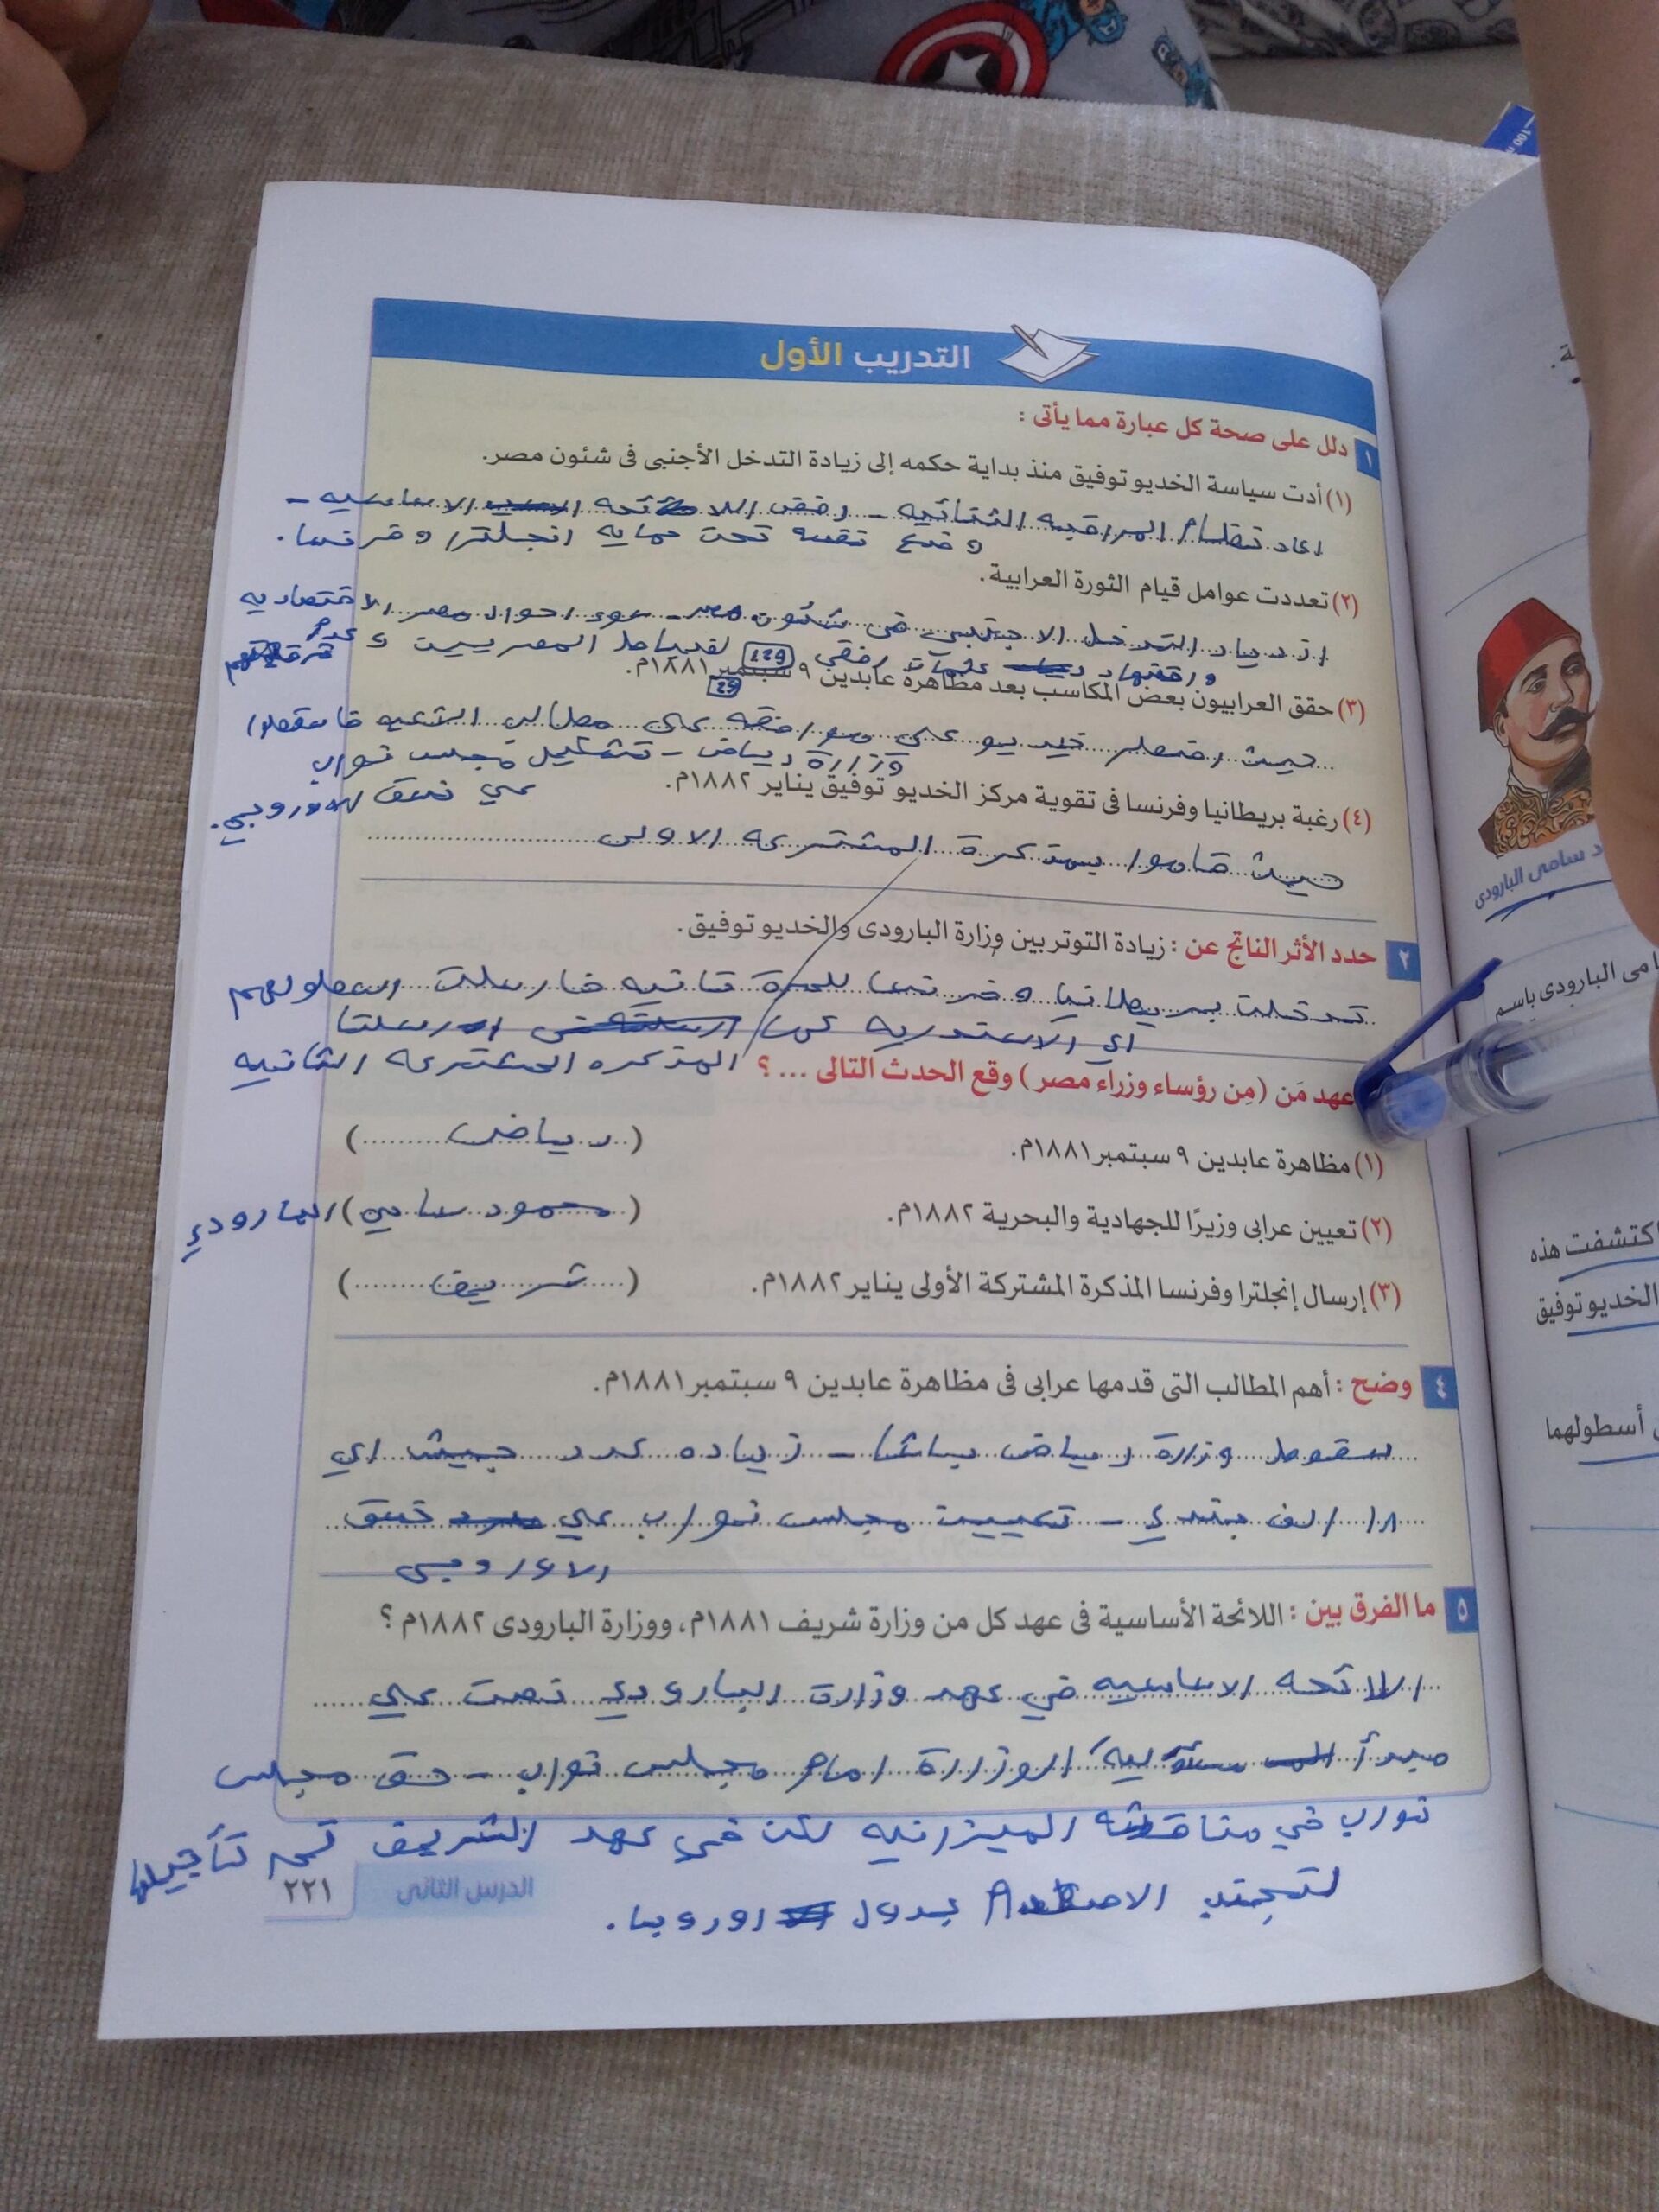 التدريب الأول
١ دلل على صحة كل عبارة مما يأتى :
(١) أدت سياسة الخديو توفيق منذ بداية حكمه إلى زيادة التدخل الأجنبى فى شئون مصر.
اعاد نظام المراقبه الثنائيه - رفض اللائحه الاساسيه -
وضع نفسه تحت حمايه انجلترا وفرنسا.
(٢) تعددت عوامل قيام الثورة العرابية.
ازدياد التدخل الاجنبي في شئون مصر - سوء احوال مصر الاقتصاديه
رفقي لضباط المصريين و عدم
(٣) حقق العرابيون بعض المكاسب بعد مظاهرة عابدين ٩ سبتمبر ١٨٨١م.
حيث اضطر خديو على موافقه علي مطالب الشعبه
وزارة رياض - تشكيل مجلس نواب
علي نسق الاوروبي.
(٤) رغبة بريطانيا وفرنسا فى تقوية مركز الخديو توفيق يناير ١٨٨٢م.
حيث قاموا بمذكرة المشتركه الاولى
٢ حدد الأثر الناتج عن : زيادة التوتر بين وزارة البارودى والخديو توفيق.
تدخلت بريطانيا وفرنسا للمرة ثانيه فارسلت اسطولهم
الي الاسكندريه كما ارسلتا
المذكره المشتركه الثانيه
عهد مَن (مِن رؤساء وزراء مصر) وقع الحدث التالى ... ؟
(١) مظاهرة عابدين ٩ سبتمبر ١٨٨١م. (رياض)
(٢) تعيين عرابى وزيرًا للجهادية والبحرية ١٨٨٢م. (محمود سامي) البارودي
(٣) إرسال إنجلترا وفرنسا المذكرة المشتركة الأولى يناير ١٨٨٢م. (شريف)
٤ وضح : أهم المطالب التى قدمها عرابى فى مظاهرة عابدين ٩ سبتمبر ١٨٨١م.
سقوط وزارة رياض باشا - زياده عدد جيش الي
١٨ الف جندي - تعيين مجلس نواب علي نسق
الاوروبي
٥ ما الفرق بين : اللائحة الأساسية فى عهد كل من وزارة شريف ١٨٨١م، ووزارة البارودى ١٨٨٢م ؟
اللائحه الاساسيه في عهد وزارة البارودي نصت علي
مبدأ الوزارة امام مجلس نواب - حق مجلس
نواب في مناقشه الميزانيه لكن في عهد الشريف تم تأجيلها
لتجنب بدول اوروبا.
الدرس الثانى
٢٢١
د سامى البارودى
امى البارودى باسم
اكتشفت هذه
الخديو توفيق
أسطولهما